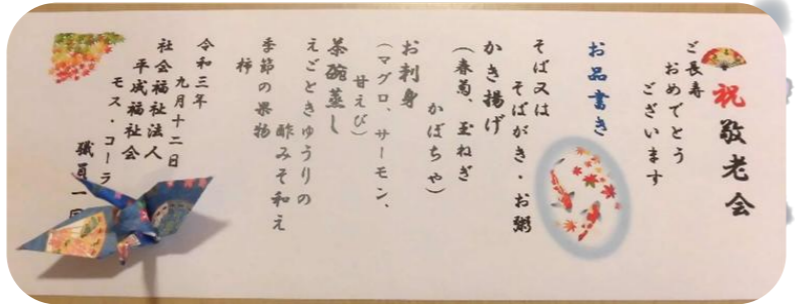 祝 敬老会
ご長寿
おめでとう
ございます
お品書き
そば又は
そばがき・お粥
かき揚げ
(春菊、玉ねぎ
かぼちゃ)
お刺身
(マグロ、サーモン、
甘えび)
茶碗蒸し
えごときゅうりの
酢みそ和え
季節の果物
柿
令和三年
九月十二日
社会福祉法人
平成福祉会
モス・コーラ
職員一同